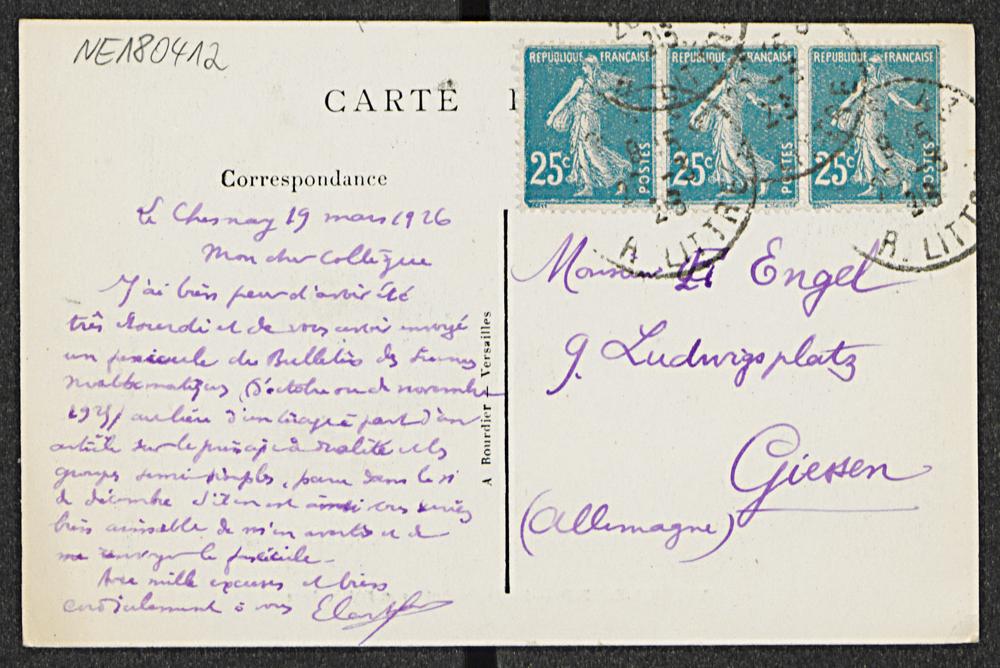 NE180412
CARTE
Correspondance
Le Chesnay 19 mars 1926
Mon cher collègue
J'ai bien peur d'avoir été
très étourdi et de vous avoir envoyé
un fascicule du Bulletin des Sciences
mathématiques (d'octobre ou de novembre
1925) au lieu d'un tirage à part d'un
article sur le principe de dualité et les
groupes semi-simples, paru dans le nº
de décembre. S'il en est ainsi vous seriez
bien aimable de m'en avertir et de
me renvoyer le fascicule.
Avec mille excuses et bien
cordialement à vous ECartan
A Bourdier – Versailles
REPUBLIQUE FRANÇAISE
25c POSTES
REPUBLIQUE FRANÇAISE
25c POSTES
REPUBLIQUE FRANÇAISE
25c POSTES
R. LITTRE
R. LITT
Monsieur Fr Engel
9. Ludwigsplatz
Giessen
(Allemagne)